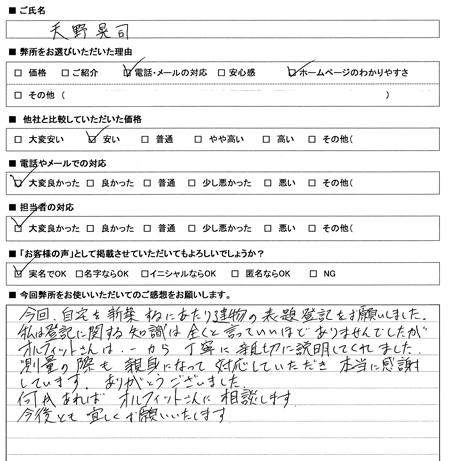 ■ ご氏名
天野晃司
■ 弊所をお選びいただいた理由
□ 価格 □ ご紹介 ☑ 電話・メールの対応 □ 安心感 ☑ ホームページのわかりやすさ
□ その他（ ）
■ 他社と比較していただいた価格
□ 大変安い ☑ 安い □ 普通 □ やや高い □ 高い □ その他(
■ 電話やメールでの対応
☑ 大変良かった □ 良かった □ 普通 □ 少し悪かった □ 悪い □ その他(
■ 担当者の対応
☑ 大変良かった □ 良かった □ 普通 □ 少し悪かった □ 悪い □ その他(
■ 「お客様の声」として掲載させていただいてもよろしいでしょうか？
☑ 実名でOK □名字ならOK □イニシャルならOK □ 匿名ならOK □ NG
■ 今回弊所をお使いいただいてのご感想をお願いします。
今回、自宅を新築するにあたり建物の表題登記をお願いしました。
私は登記に関する知識は全くと言っていいほどありませんでしたが
オルフィットさんは、一から丁寧に親切に説明してくれました。
測量の際も親身になって対応していただき本当に感謝
しています。ありがとうございました。
何かあればオルフィットさんに相談します。
今後とも宜しくお願いいたします